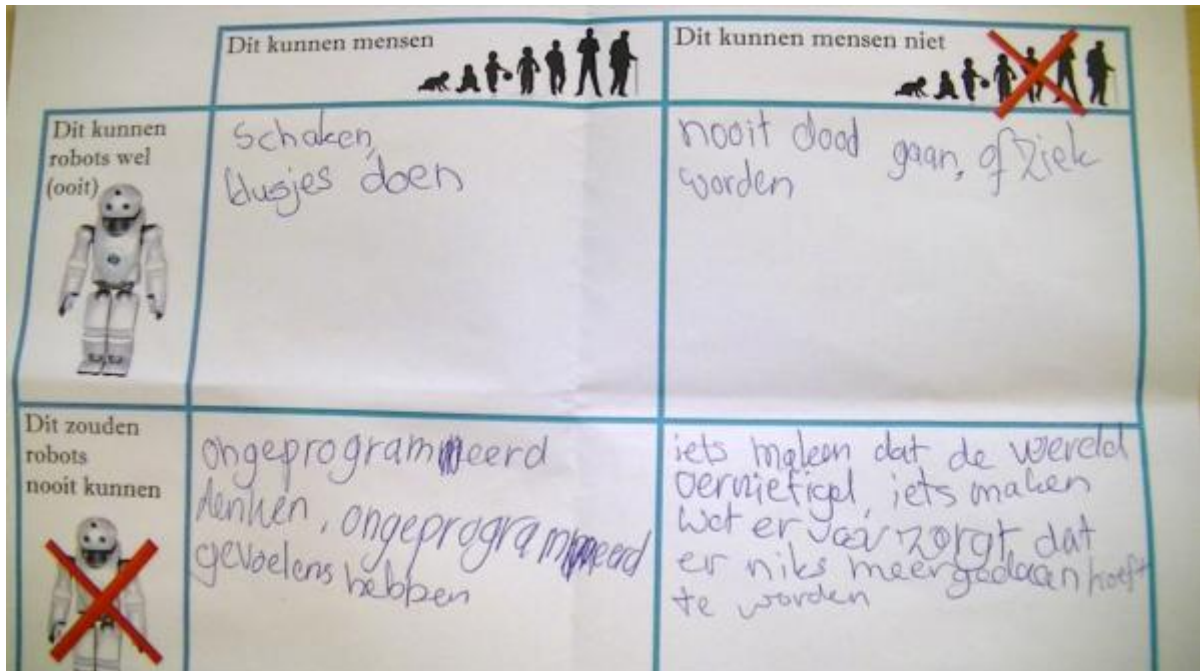 Dit kunnen mensen
Dit kunnen mensen niet
Dit kunnen
robots wel
(ooit)
schaken,
klusjes doen
nooit dood gaan, of ziek
worden
Dit zouden
robots
nooit kunnen
ongeprogrammeerd
denken, ongeprogrammeerd
gevoelens hebben
iets maken dat de wereld
vernietigd, iets maken
wat er voor zorgt dat
er niks meer gedaan hoeft
te worden